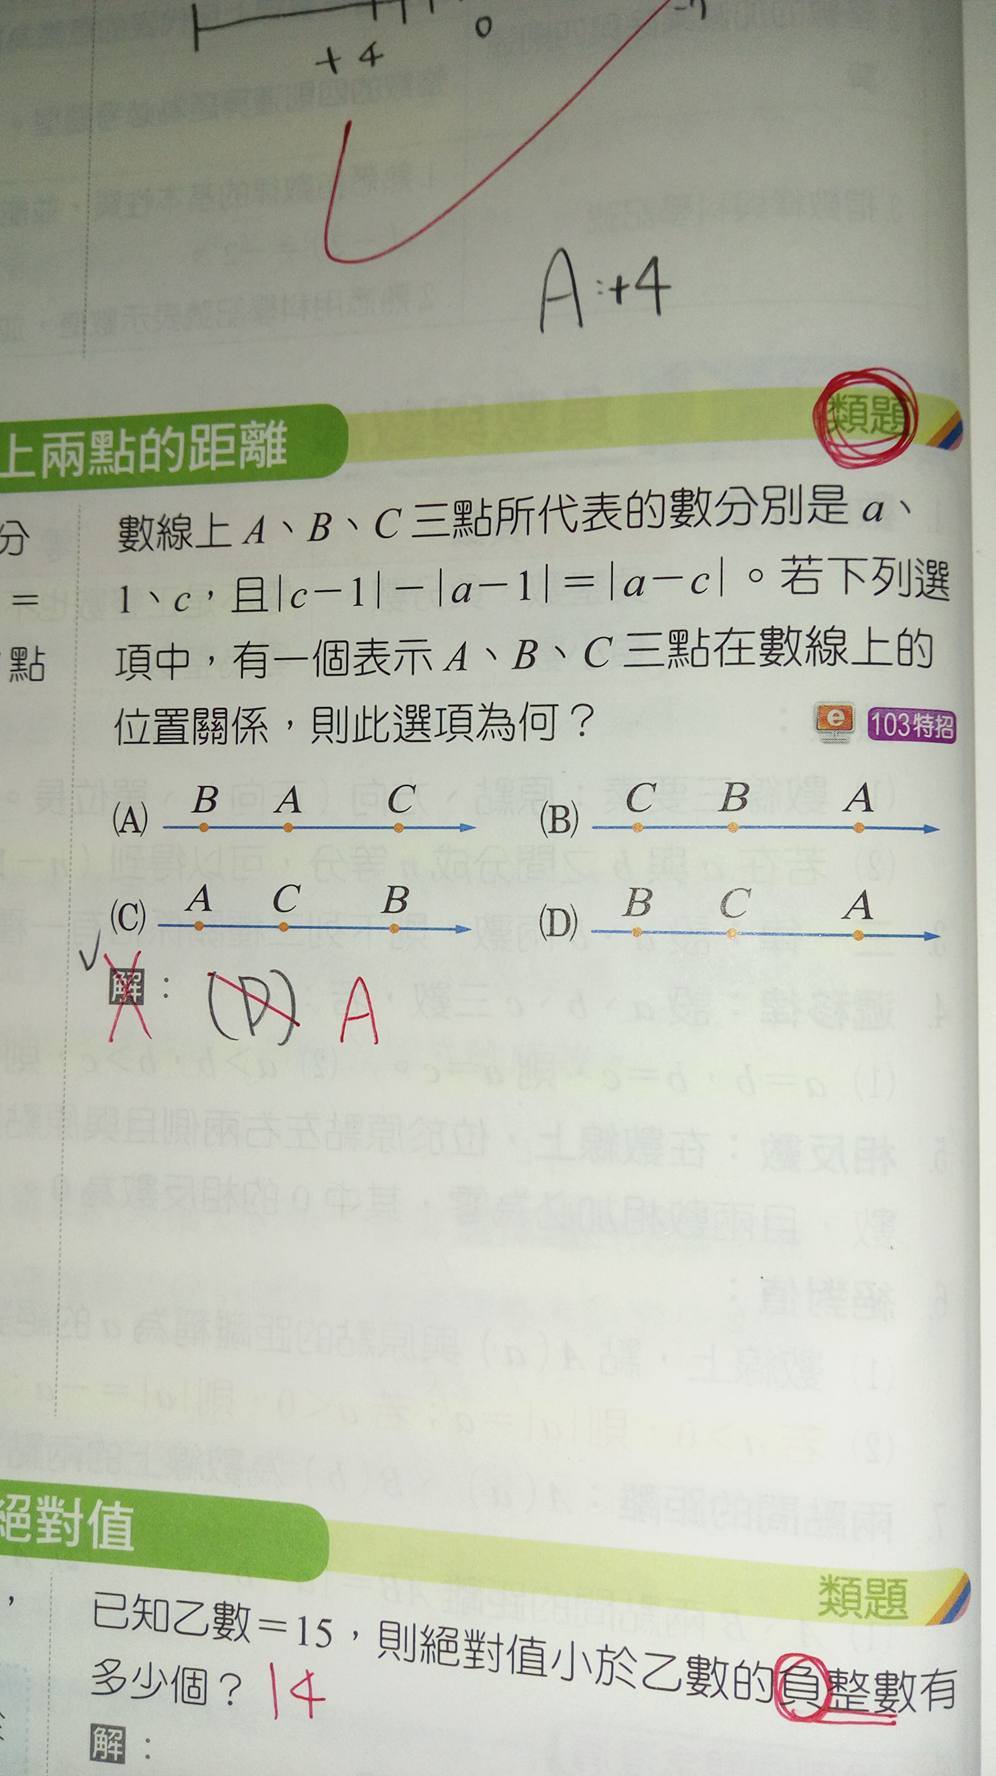 +4
0
-7
A:+4
上兩點的距離
類題
分
數線上 A、B、C 三點所代表的數分別是 a、
=
1、c，且|c-1|-|a-1|=|a-c|。若下列選
點
項中，有一個表示 A、B、C 三點在數線上的
位置關係，則此選項為何？
e 103特招
(A) B A C
(B) C B A
(C) A C B
(D) B C A
解： (D) A
絕對值
類題
，
已知乙數=15，則絕對值小於乙數的負整數有
多少個？ 14
解：